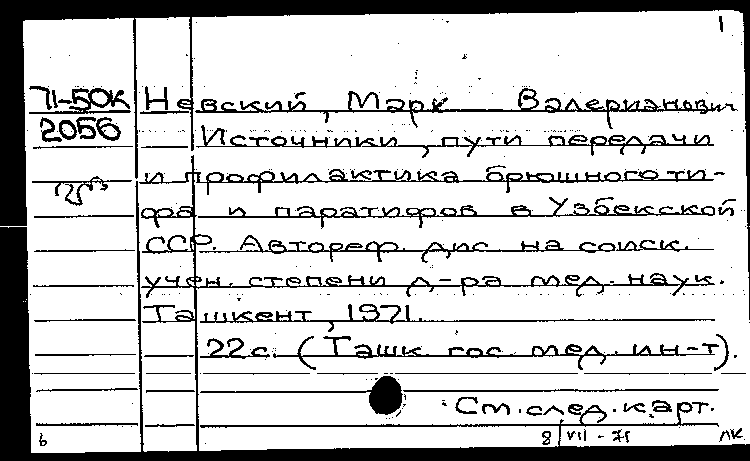 1
71-50К Невский, Марк Валерианович
2056 Источники, пути передачи
и профилактика брюшного ти-
фа и паратифов в Узбекской
ССР. Автореф. дис на соиск.
учен. степени д-ра мед. наук.
Ташкент, 1971.
22 с. (Ташк. гос. мед. ин-т).
См. след. карт.
8/VII - 71 ЛК